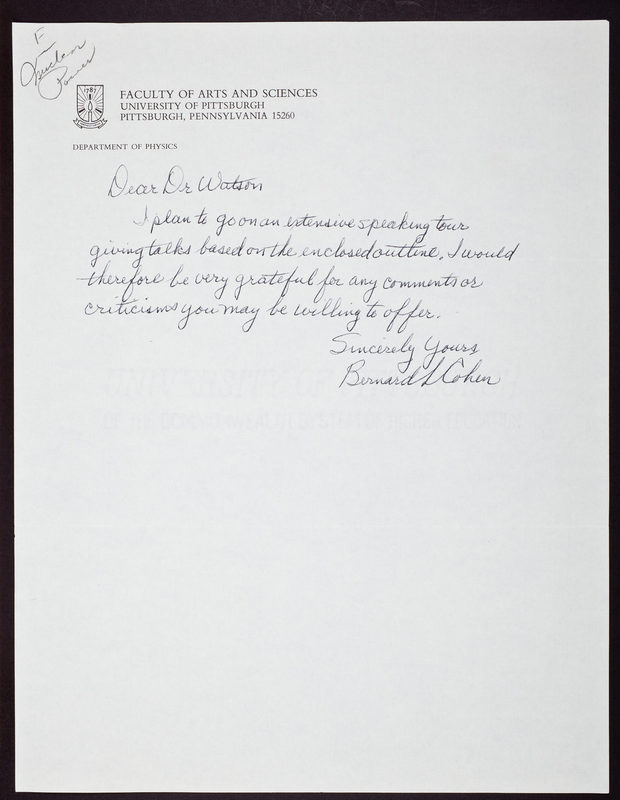 F
Nuclear
Power
1787
FACULTY OF ARTS AND SCIENCES
UNIVERSITY OF PITTSBURGH
PITTSBURGH, PENNSYLVANIA 15260
DEPARTMENT OF PHYSICS
Dear Dr Watson
I plan to go on an extensive speaking tour
giving talks based on the enclosed outline. I would
therefore be very grateful for any comments or
criticisms you may be willing to offer.
Sincerely Yours
Bernard L Cohen